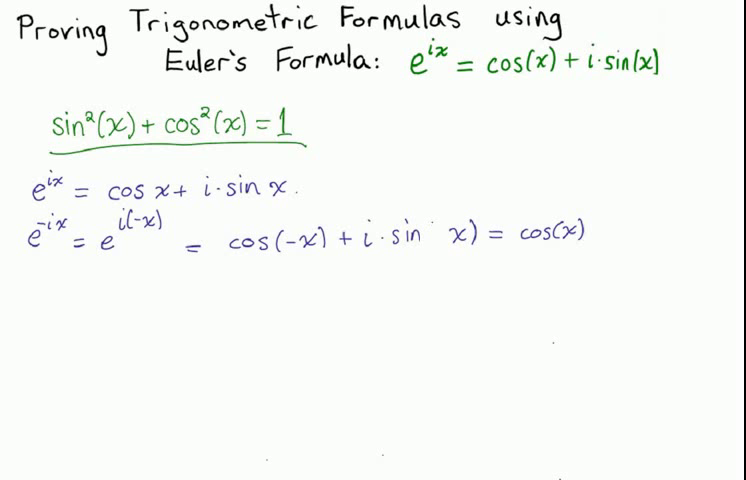 Proving Trigonometric Formulas using
Euler's Formula: e^{ix} = cos(x) + i·sin(x)
sin²(x) + cos²(x) = 1
e^{ix} = cos x + i·sin x.
e^{-ix} = e^{i(-x)} = cos(-x) + i·sin x) = cos(x)